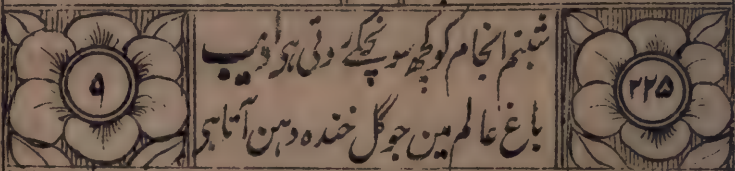 ۲۲۵
شبنم انجام کو کچھ سونچکے روتی ہی ادیب
باغ عالم مین جو گل خندہ دہن آتا ہی
۹